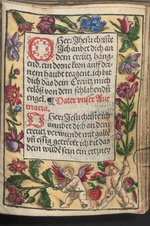 O Her: Jhesu christe
Ich anbet dich an
dem creütz hang-
end, ein dorne kron auff dei-
nem haubt tragent, ich bit
dich das dein Creütz mich
erlös von dem schlahenden
engel. Vater unser Aue
maria.
O Her: Jesu christe ich
anbet dich an dem
creütz verwundt mit gall
un essig getrenckt ich bit das
dein